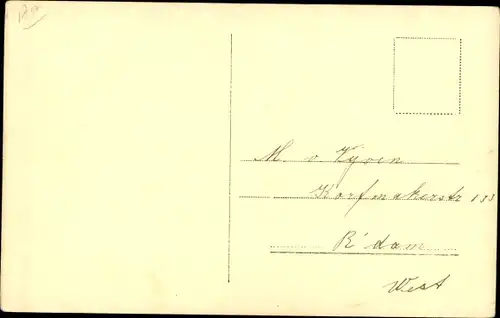 M. v. Vyven
Korfmakerstr 133
R'dam
West